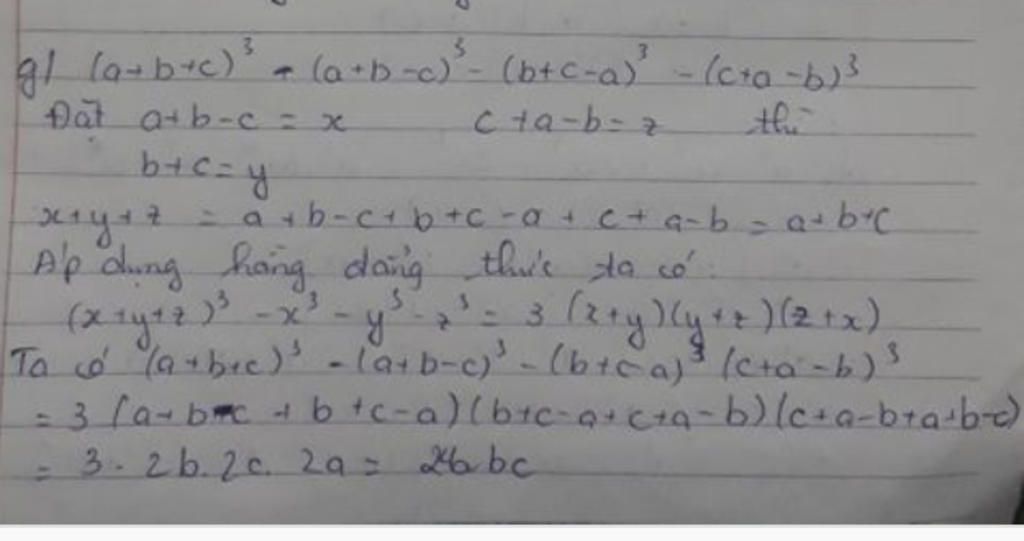 g) (a+b+c)³ - (a+b-c)³ - (b+c-a)³ - (c+a-b)³
Đặt a+b-c = x c+a-b = z thì
b+c = y
x+y+z = a+b-c+b+c-a+c+a-b = a+b+c
Áp dụng hằng đẳng thức ta có
(x+y+z)³ - x³ - y³ - z³ = 3 (x+y)(y+z)(z+x)
Ta có (a+b+c)³ - (a+b-c)³ - (b+c-a)³ (c+a-b)³
= 3 (a+b-c + b+c-a)(b+c-a+c+a-b)(c+a-b+a+b-c)
= 3. 2b. 2c. 2a = bc